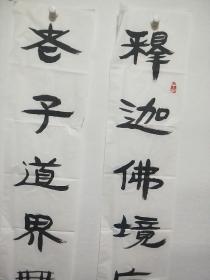 釋迦佛境
老子道界